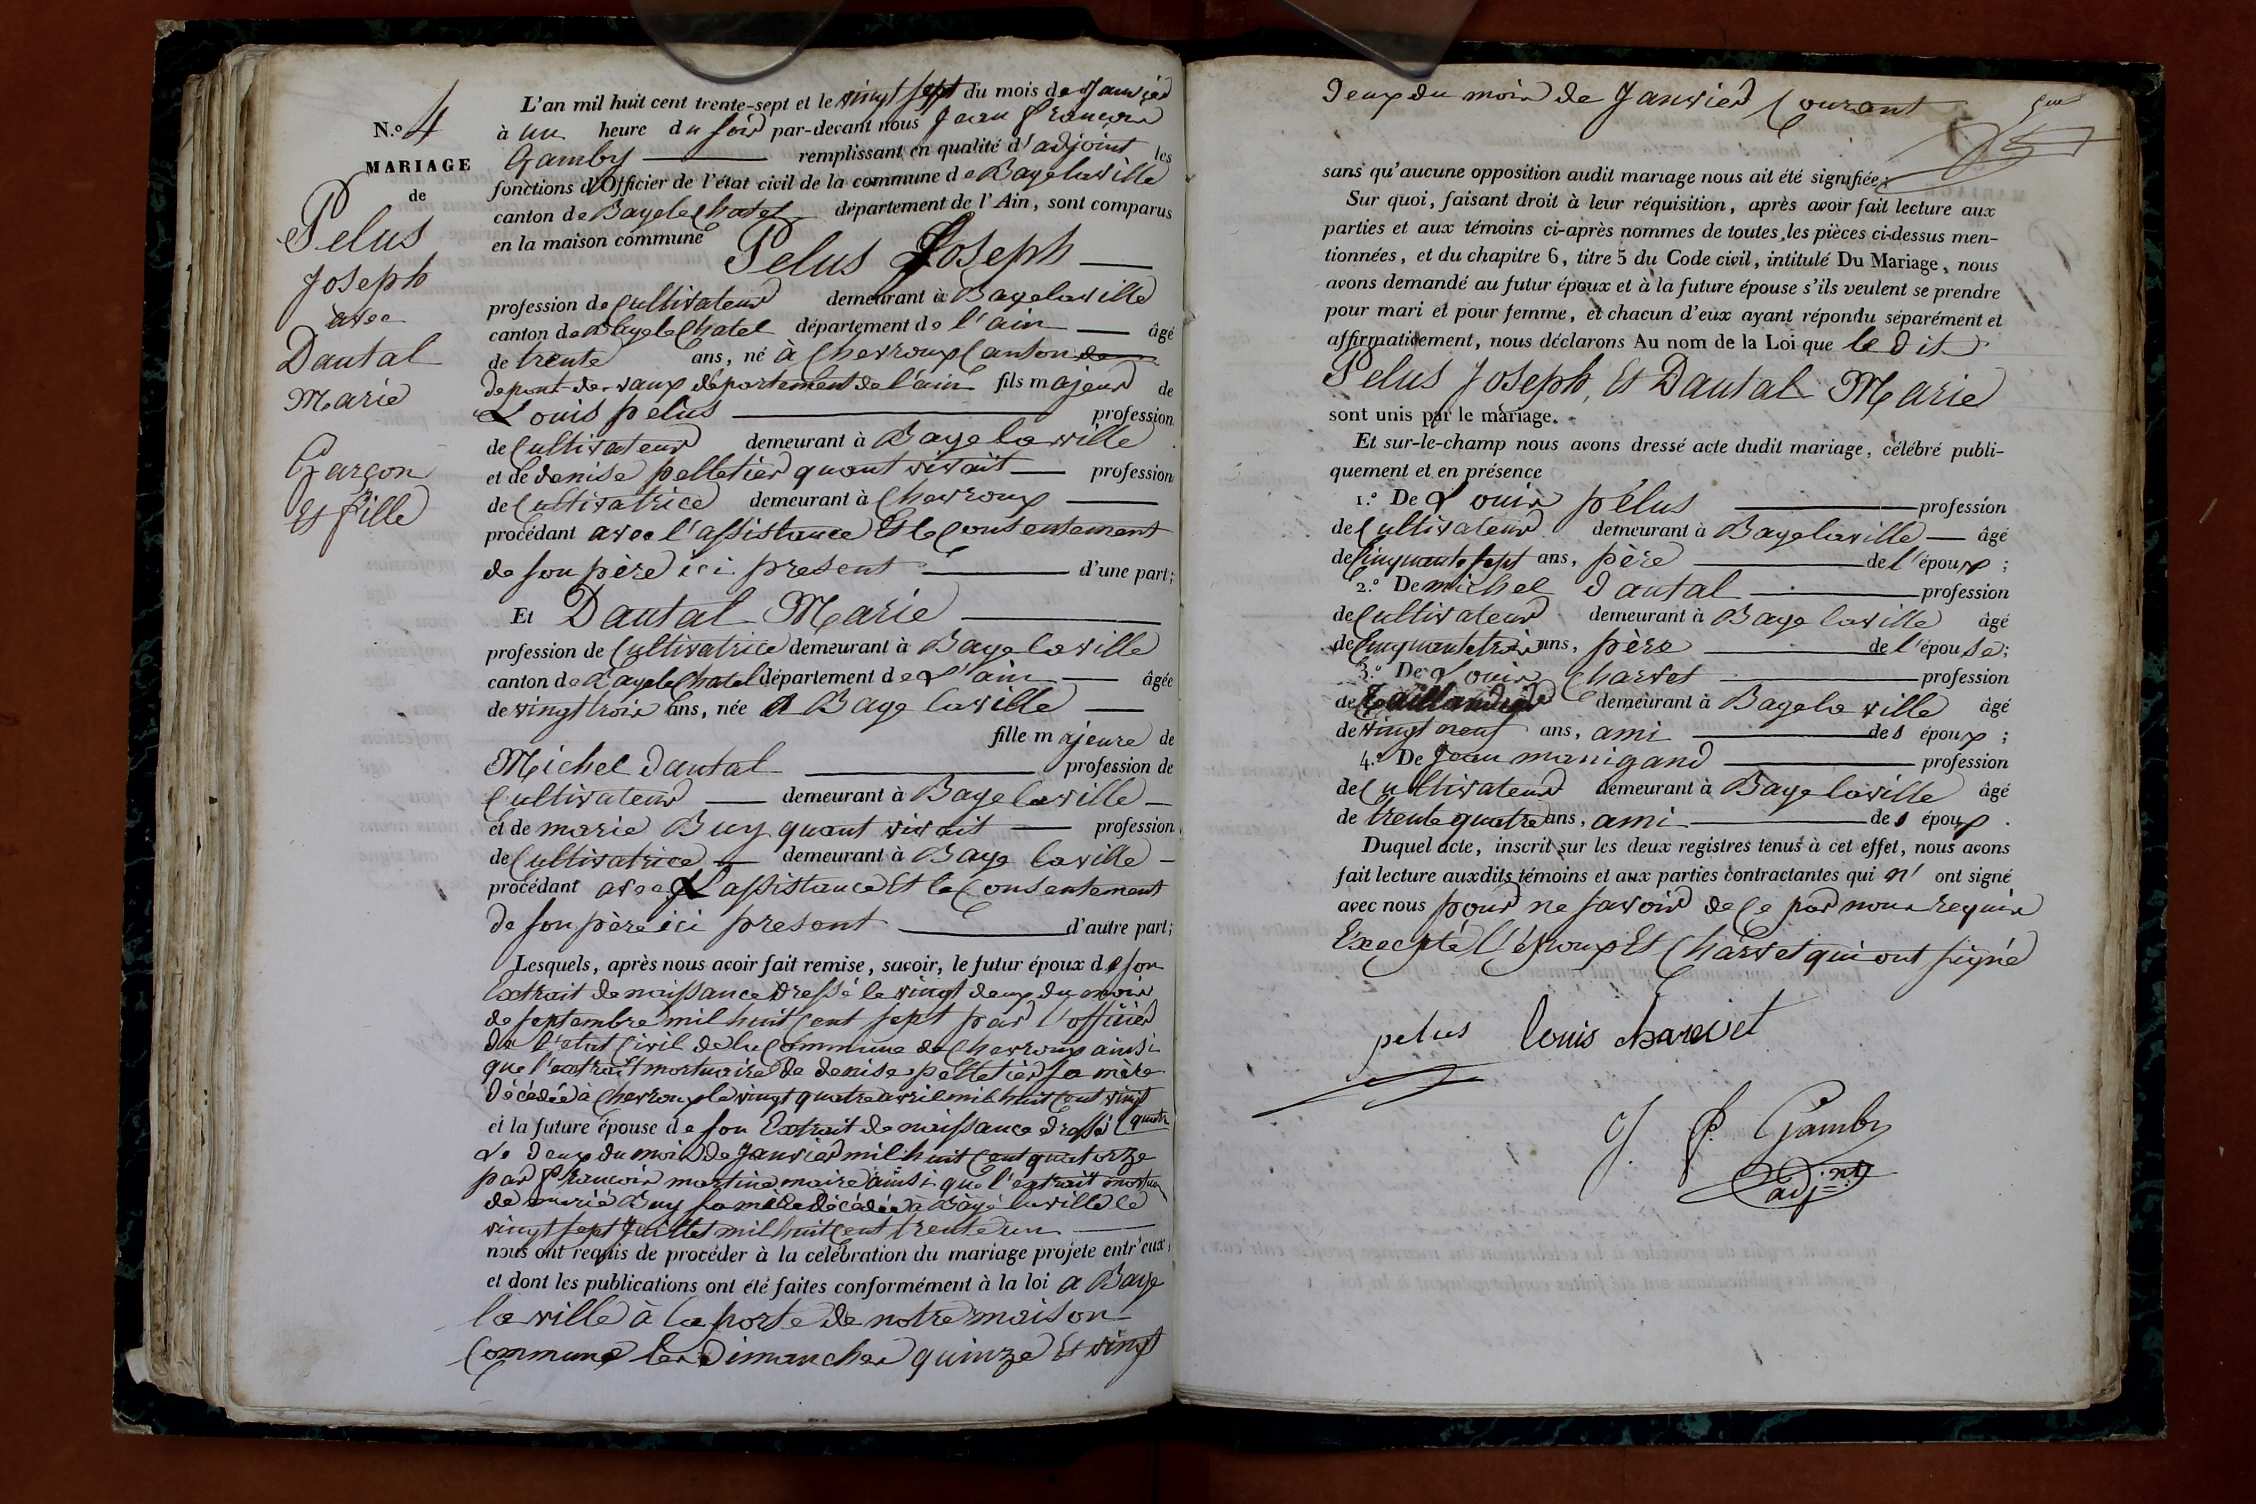 N.o 4
MARIAGE
de
Pelus
Joseph
avec
Dautal
Marie
Garçon
Et fille
L'an mil huit cent trente-sept et le vingt sept du mois de Janvier
à un heure du soir par-devant nous Jean François
Gamby remplissant en qualité d'adjoint les
fonctions d'Officier de l'état civil de la commune de Bagelaville
canton de Bagele Chatel département de l'Ain, sont comparus
en la maison commune Pelus Joseph
profession de Cultivateur demeurant à Bagelaville
canton de Bagele Chatel département de l'ain âgé
de trente ans, né à Chevroux Canton de
depont-de-vaux département de l'ain fils majeur de
Louis pelus profession
de Cultivateur demeurant à Bage laville
et de denise pelletier quant vivait profession
de Cultivatrice demeurant à Chevroux
procédant avec l'assistance Et le Consentement
de son père ici present d'une part;
Et Dautal Marie
profession de Cultivatrice demeurant à Bage laville
canton de Bagele Chatel département de l'ain âgée
de vingt trois ans, née à Bage laville
fille majeure de
Michel dautal profession de
Cultivateur demeurant à Bage laville
et de marie Buy quant vivait profession
de Cultivatrice demeurant à Bage laville
procédant avec L'assistance Et le Consentement
de son père ici present d'autre part;
Lesquels, après nous avoir fait remise, savoir, le futur époux de son
Extrait de naissance dressé le vingt deux du mois
de septembre mil huit Cent sept par l'officier
de l'etat Civil de la Commune de Chevroux ainsi
que l'extrait mortuaire de denise pelletier sa mère
décédée à Chevroux le vingt quatre avril mil huit Cent vingt
quatre
et la future épouse de son Extrait de naissance dressé
Le deux du mois de Janvier mil huit Cent quatorze
par François martine maire ainsi que l'extrait
de marie Buy sa mère décédée à Bagé laville le
vingt sept Juillet mil huit Cent trente un
nous ont requis de procéder à la célébration du mariage projeté entr'eux,
et dont les publications ont été faites conformément à la loi a Bage
la ville à la porte de notre maison
Commune les Dimanches quinze Et vingt
Deux du mois de Janvier Courant
sans qu'aucune opposition audit mariage nous ait été signifiée;
Sur quoi, faisant droit à leur réquisition, après avoir fait lecture aux
parties et aux témoins ci-après nommés de toutes les pièces ci-dessus men-
tionnées, et du chapitre 6, titre 5 du Code civil, intitulé Du Mariage, nous
avons demandé au futur époux et à la future épouse s'ils veulent se prendre
pour mari et pour femme, et chacun d'eux ayant répondu séparément et
affirmativement, nous déclarons Au nom de la Loi que le dit
Pelus Joseph, Et Dautal Marie
sont unis par le mariage.
Et sur-le-champ nous avons dressé acte dudit mariage, célébré publi-
quement et en présence
1.o De Louis pélus profession
de Cultivateur demeurant à Bagelaville âgé
de Cinquante sept ans, père de l'époux;
2.o De michel dautal profession
de Cultivateur demeurant à Bage laville âgé
de Cinquante trois ans, père de l'épouse;
3.o De Louis Charvet profession
de Taillandier demeurant à Bage la ville âgé
de vingt neuf ans, ami des époux;
4.o De Jean manigand profession
de Cultivateur demeurant à Bage laville âgé
de trente quatre ans, ami des époux.
Duquel acte, inscrit sur les deux registres tenus à cet effet, nous avons
fait lecture auxdits témoins et aux parties contractantes qui n' ont signé
avec nous pour ne savoir de Ce par nous requis
Excepté l'époux Et Charvet qui ont signé
pelus louis charvet
J. F. Gamby
adjint